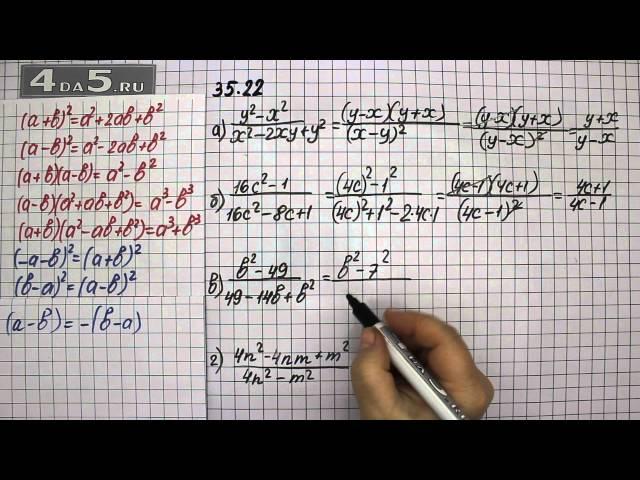 4DA5.RU
(a+b)²=a²+2ab+b²
(a-b)²=a²-2ab+b²
(a+b)(a-b)=a²-b²
(a-b)(a²+ab+b²)=a³-b³
(a+b)(a²-ab+b²)=a³+b³
(-a-b)²=(a+b)²
(b-a)²=(a-b)²
(a-b)=-(b-a)
35.22
а) (y²-x²)/(x²-2xy+y²) = (y-x)(y+x)/(x-y)² = (y-x)(y+x)/(y-x)² = (y+x)/(y-x)
б) (16c²-1)/(16c²-8c+1) = ((4c)²-1²)/((4c)²+1²-2·4c·1) = (4c-1)(4c+1)/(4c-1)² = (4c+1)/(4c-1)
в) (b²-49)/(49-14b+b²) = b²-7²
г) (4n²-4nm+m²)/(4n²-m²)